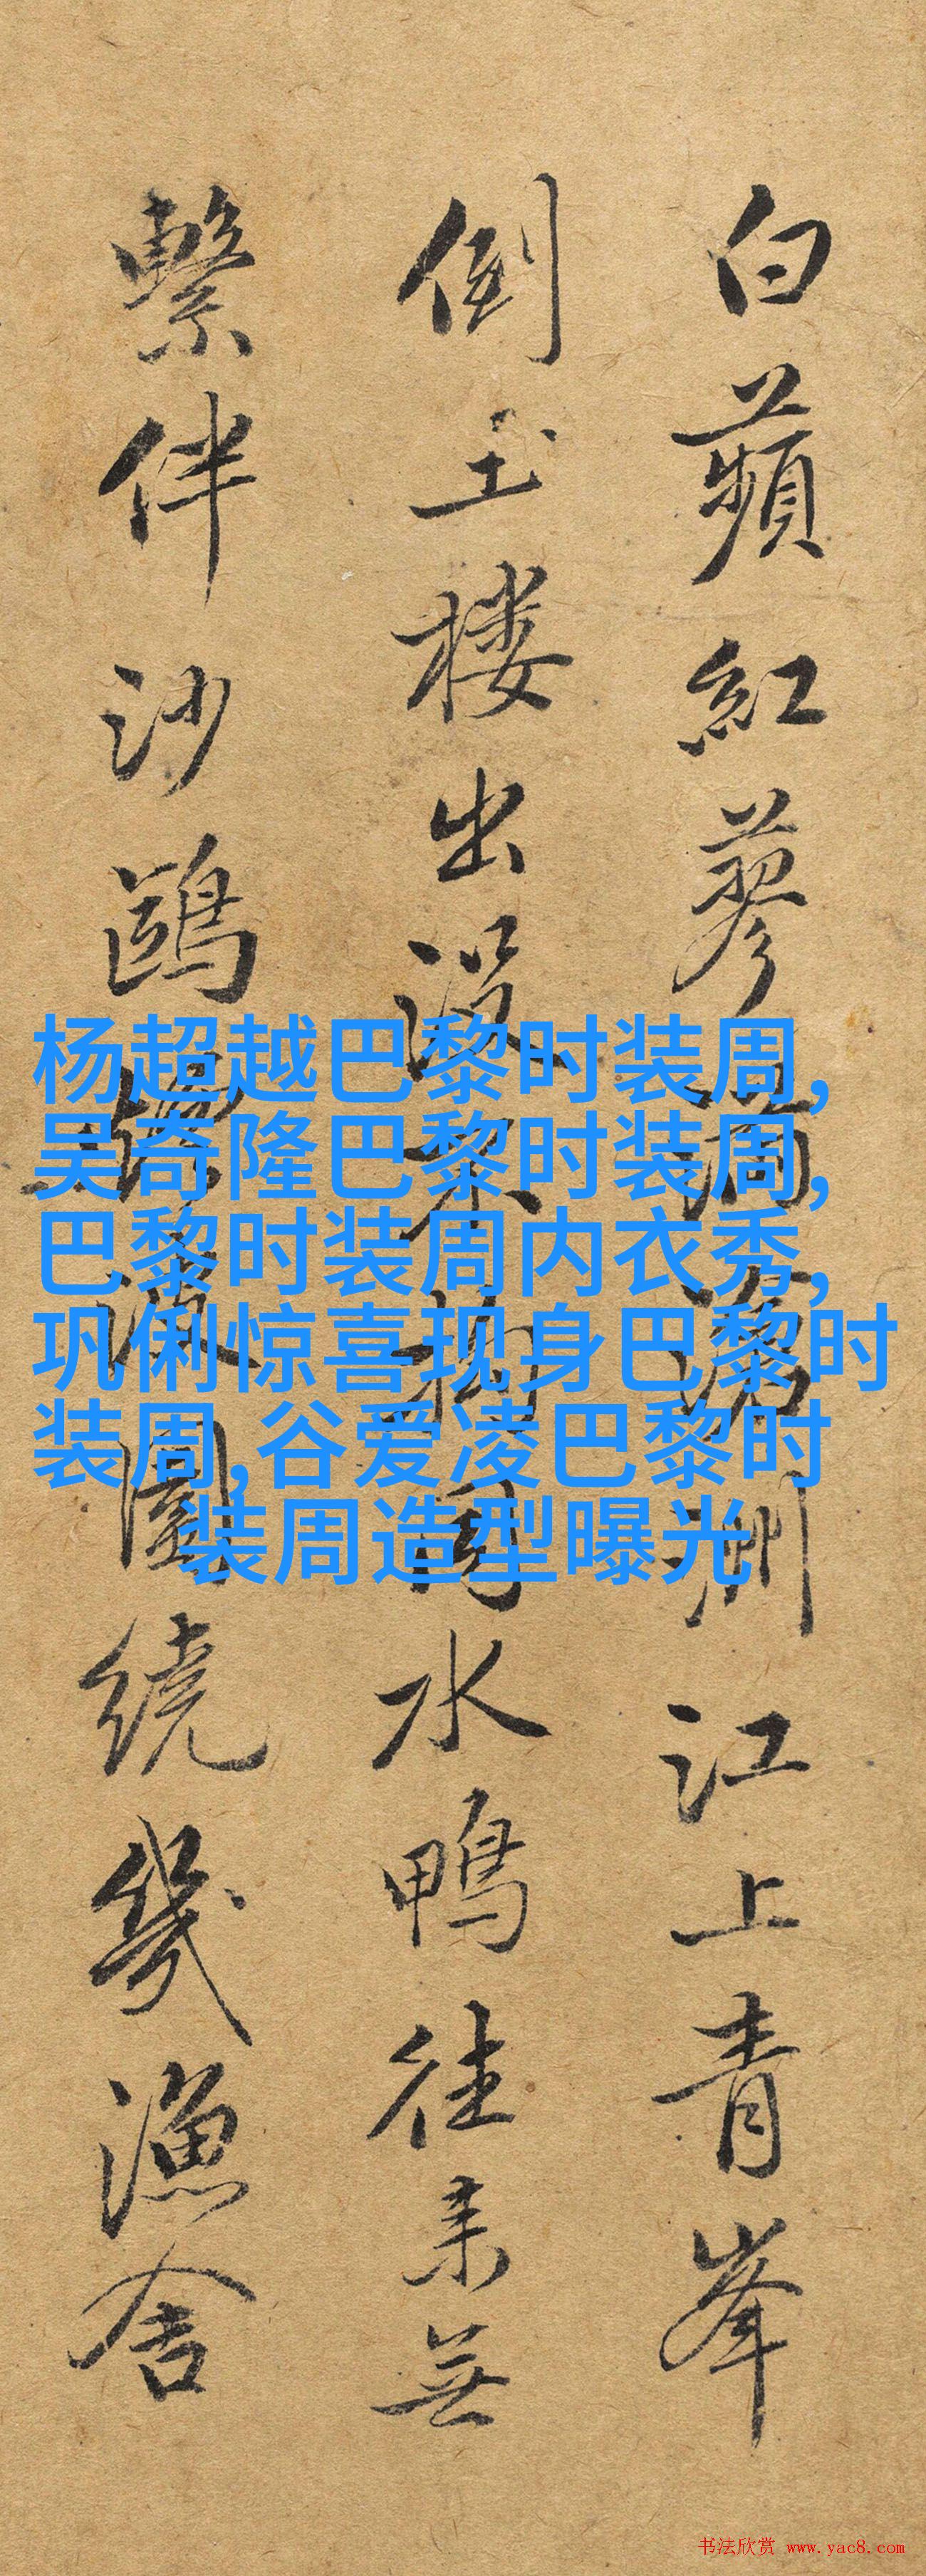 白蘋紅蓼滄洲江上青峯
倒玉楼出没不拘同水鴨往来無
繫伴沙鷗波圍繞幾漁舍
杨超越巴黎时装周,
吴奇隆巴黎时装周,
巴黎时装周内衣秀,
巩俐惊喜现身巴黎时
装周,谷爱凌巴黎时
装周造型曝光
书法欣赏 www.yac8.com